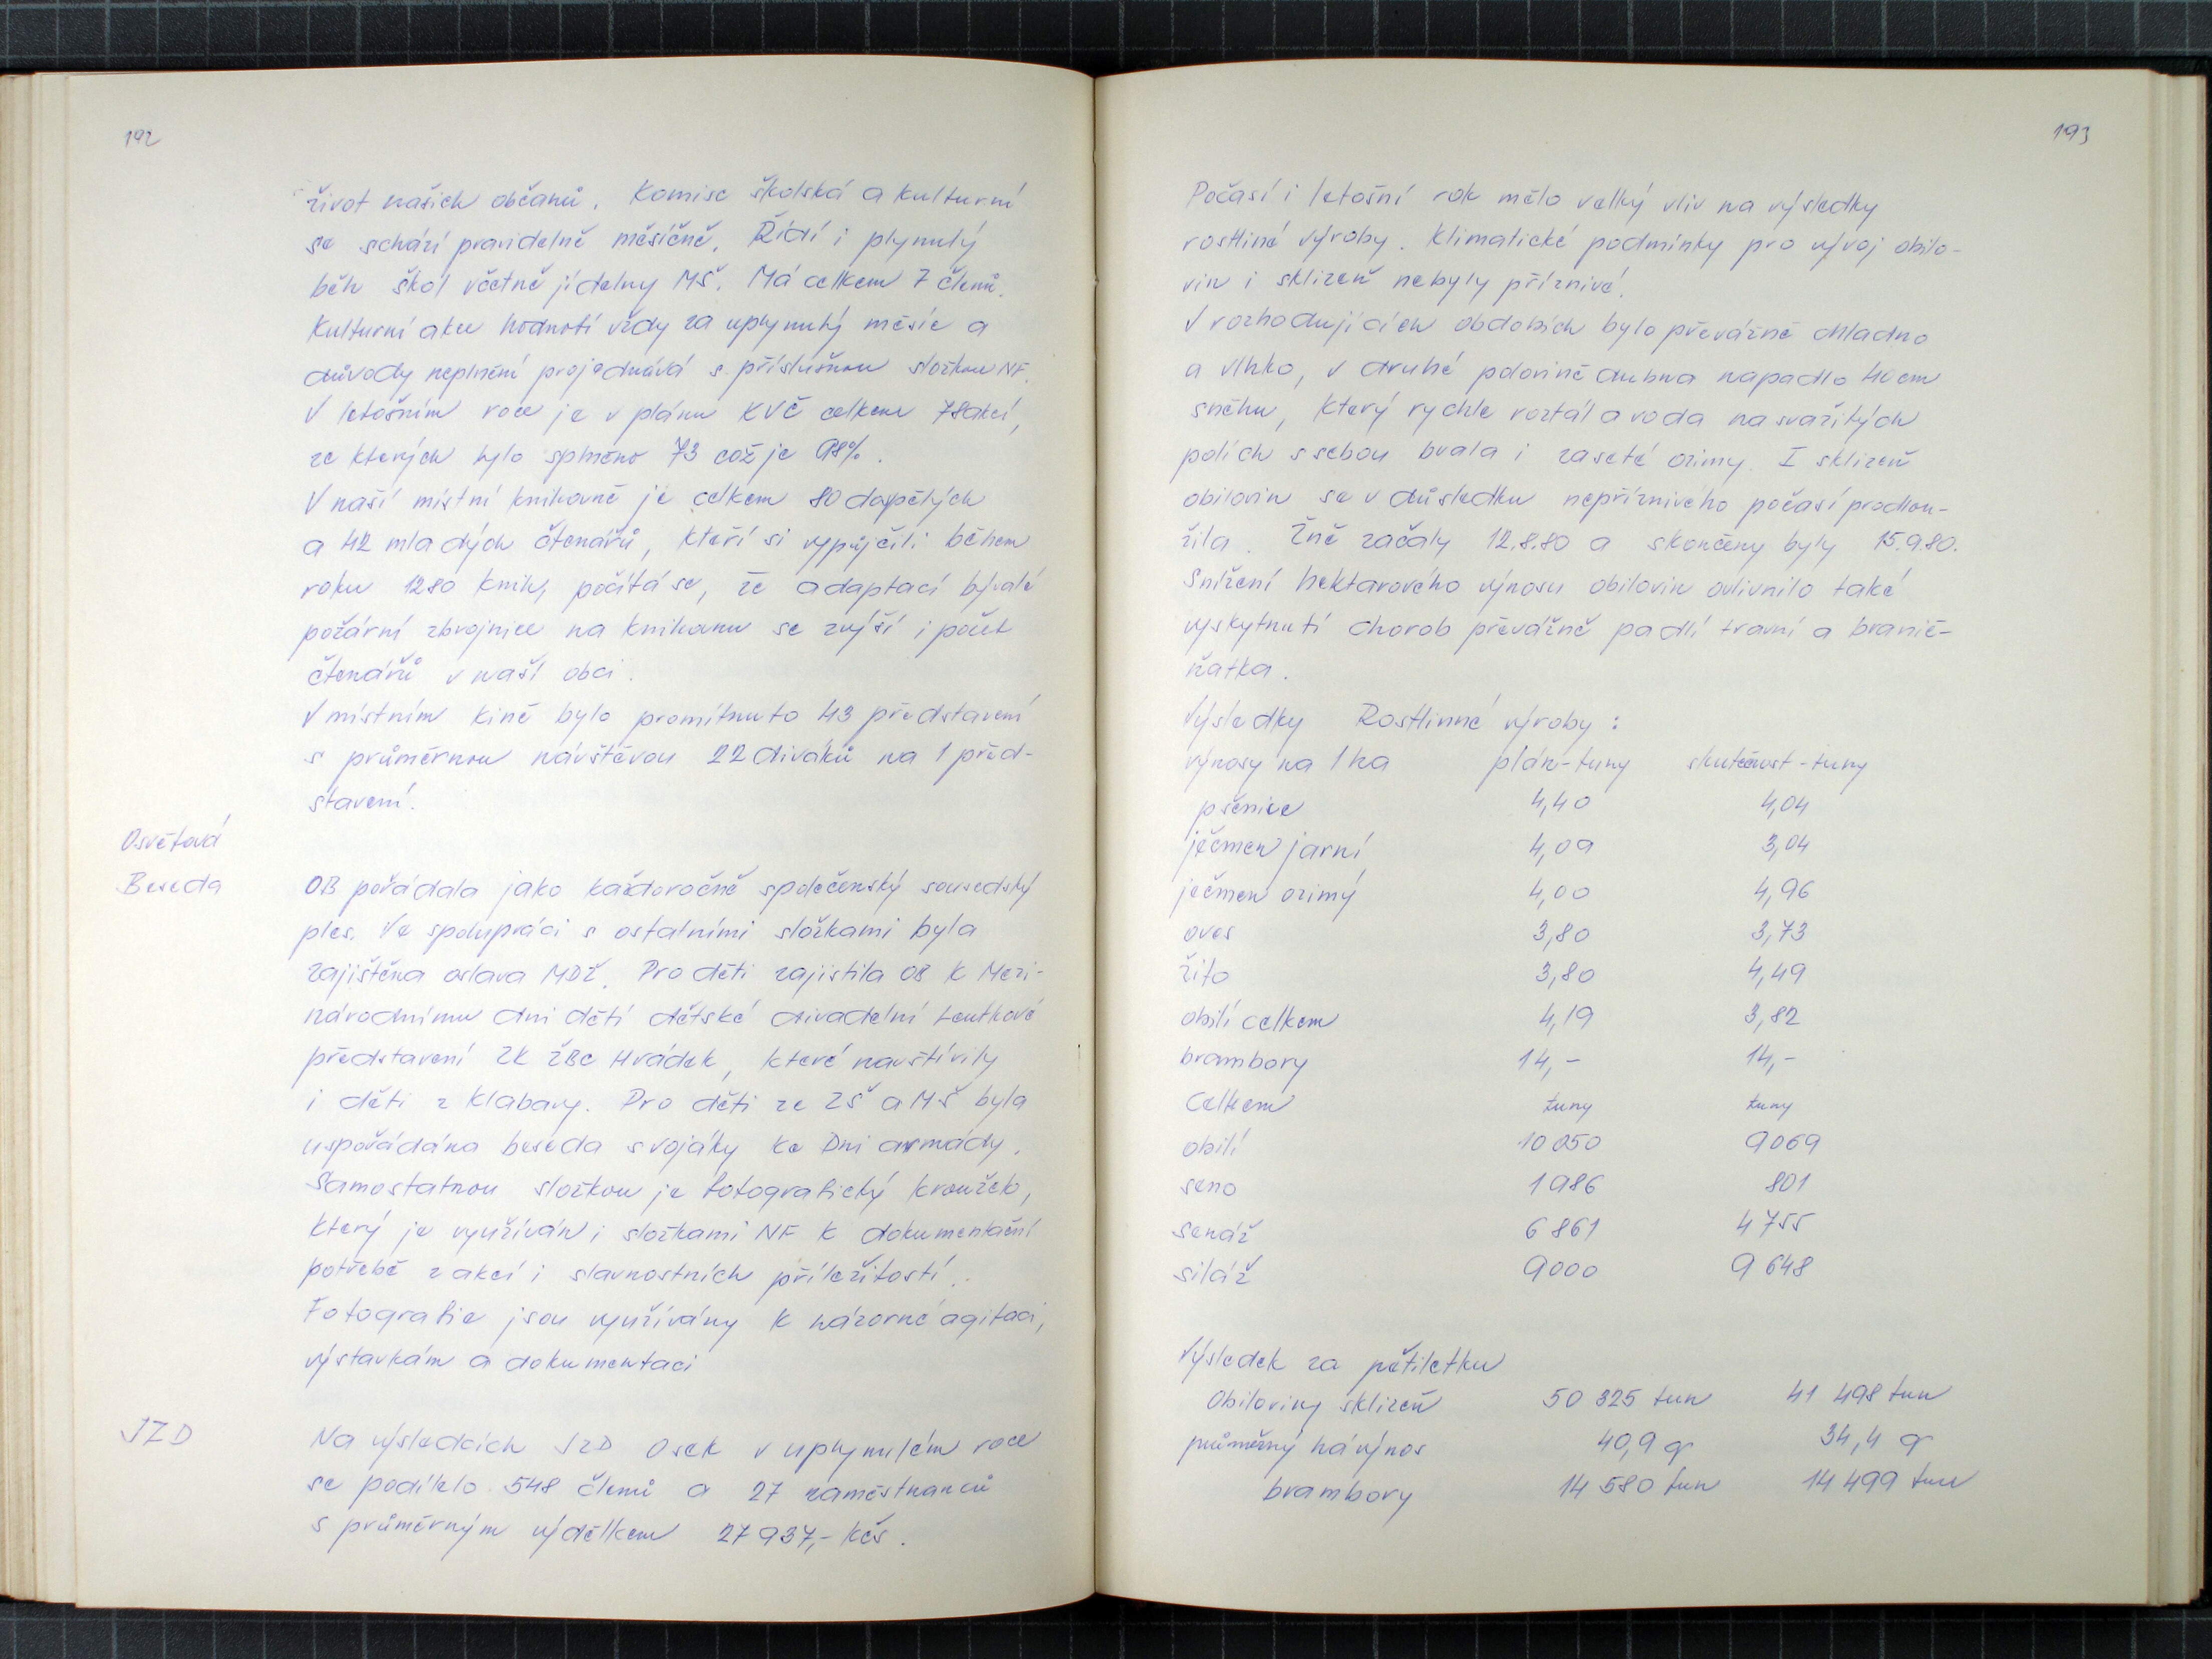 192
život našich občanů. Komise školská a kulturní
se schází pravidelně měsíčně. Řídí i plynulý
běh škol včetně jídelny MŠ. Má celkem 7 členů.
Kulturní akce hodnotí vždy za uplynulý měsíc a
důvody neplnění projednává s příslušnou složkou NF.
V letošním roce je v plánu KVČ celkem 78 akcí,
ze kterých bylo splněno 73 což je 98%.
V naší místní knihovně je celkem 80 dospělých
a 42 mladých čtenářů, kteří si vypůjčili během
roku 1280 knih, počítá se, že adaptací bývalé
požární zbrojnice na knihovnu se zvýší i počet
čtenářů v naší obci.
V místním kině bylo promítnuto 43 představení
s průměrnou návštěvou 22 diváků na 1 před-
stavení.
Osvětová
Beseda
OB pořádala jako každoročně společenský sousedský
ples. Ve spolupráci s ostatními složkami byla
zajištěna oslava MDŽ. Pro děti zajistila OB k Mezi-
národnímu dni dětí dětské divadelní loutkové
představení ZK ŽBC Hrádek, které navštívily
i děti z Klabavy. Pro děti ze ZŠ a MŠ byla
uspořádána beseda s vojáky ke Dni armády.
Samostatnou složkou je fotografický kroužek,
který je využíván i složkami NF k dokumentační
potřebě z akcí i slavnostních příležitostí.
Fotografie jsou využívány k názorné agitaci,
výstavkám a dokumentaci
JZD
Na výsledcích JZD Osek v uplynulém roce
se podílelo 548 členů a 27 zaměstnanců
s průměrným výdělkem 27 937,- Kčs.
193
Počasí i letošní rok mělo velký vliv na výsledky
rostliné výroby. Klimatické podmínky pro vývoj obilo-
vin i sklizeň nebyly příznivé.
V rozhodujících obdobích bylo převážně chladno
a vlhko, v druhé polovině dubna napadlo 40 cm
sněhu, který rychle roztál a voda na svažitých
polích s sebou brala i zaseté ozimy. I sklizeň
obilovin se v důsledku nepříznivého počasí prodlou-
žila. Žně začaly 12.8.80 a skončeny byly 15.9.80.
Snížení hektarového výnosu obilovin ovlivnilo také
vyskytnutí chorob převážně padlí travní a branič-
natka.
Výsledky Rostlinné výroby :
výnosy na 1 ha plán-tuny skutečnost-tuny
pšenice 4,40 4,04
ječmen jarní 4,09 3,04
ječmen ozimý 4,00 4,96
oves 3,80 3,73
žito 3,80 4,49
obilí celkem 4,19 3,82
brambory 14,- 14,-
Celkem tuny tuny
obilí 10 050 9069
seno 1986 801
senáž 6 861 4 755
siláž 9000 9 648
Výsledek za pětiletku
Obiloviny sklizeň 50 325 tun 41 498 tun
průměrný há výnos 40,9 q 34,4 q
brambory 14 580 tun 14 499 tun